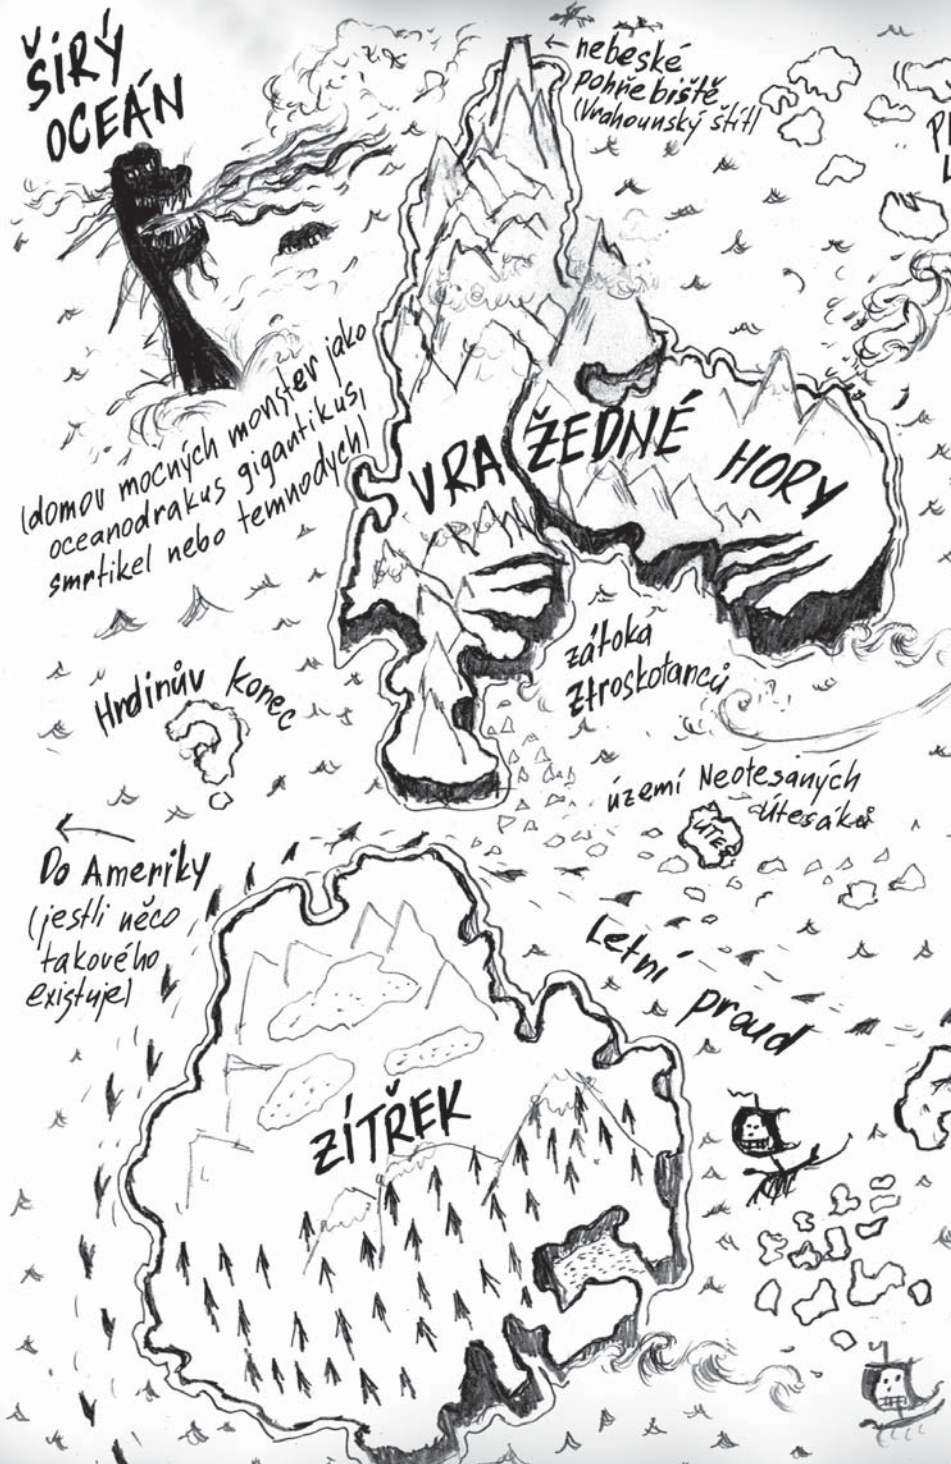 ŠIRÝ
OCEÁN
nebeské
pohřebiště
(Vrahounský štít)
(domov mocných monster jako
oceanodrakus gigantikus,
smrtikel nebo temnodych)
VRAŽEDNÉ HORY
zátoka
ztroskotanců
Hrdinův konec
území Neotesaných
Útesáků
ÚTES
Do Ameriky
(jestli něco
takového
existuje)
Letní proud
ZÍTŘEK